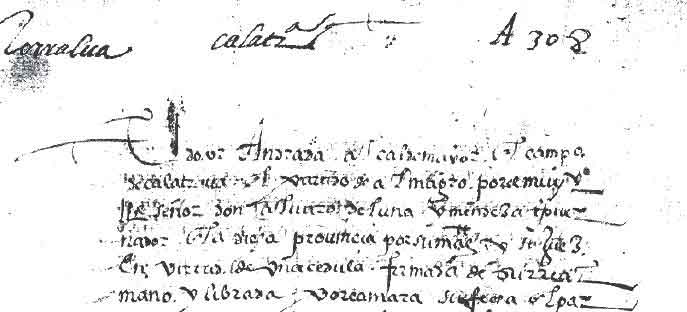 Torralua calatra A 308
El dotor Andrada alcalde mayor del campo
de calatraua y partido de almagro por el muy
señor don aluaro de luna y mendoça gouer
nador de la dicha prouincia por su mag y juez
En virtud de vna cedula firmada de su Rreal
mano y librada por camara su fecha en el par